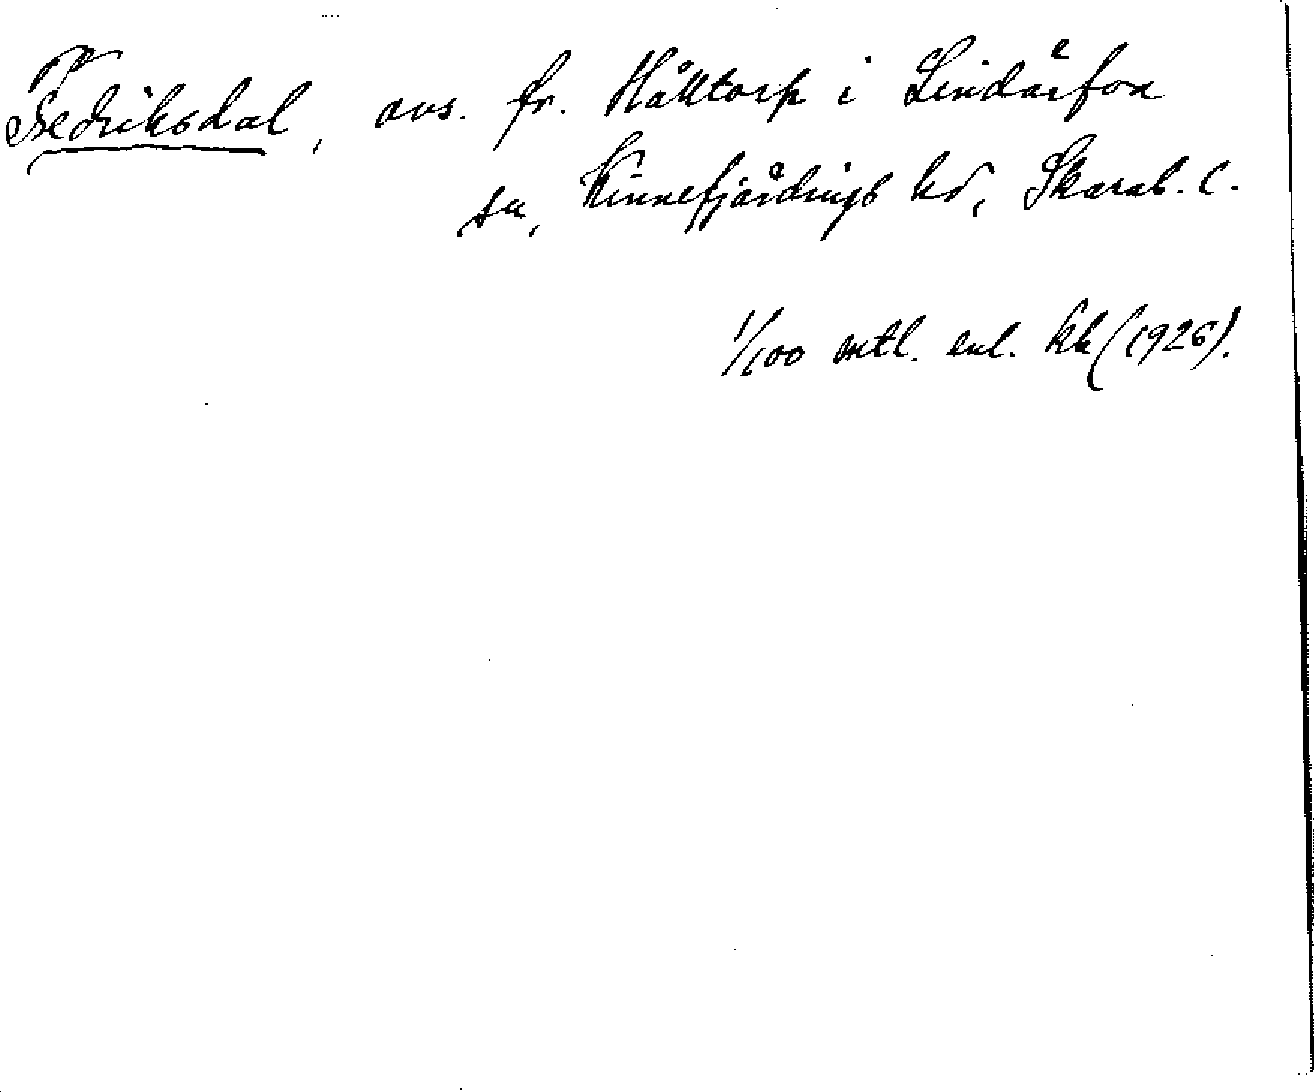 Fredriksdal, avs. fr. Hålltorp i Lindärfva
sn, Kinnefjärdings hd, Skarab. l.
1/100 mtl. enl. kk (1926).